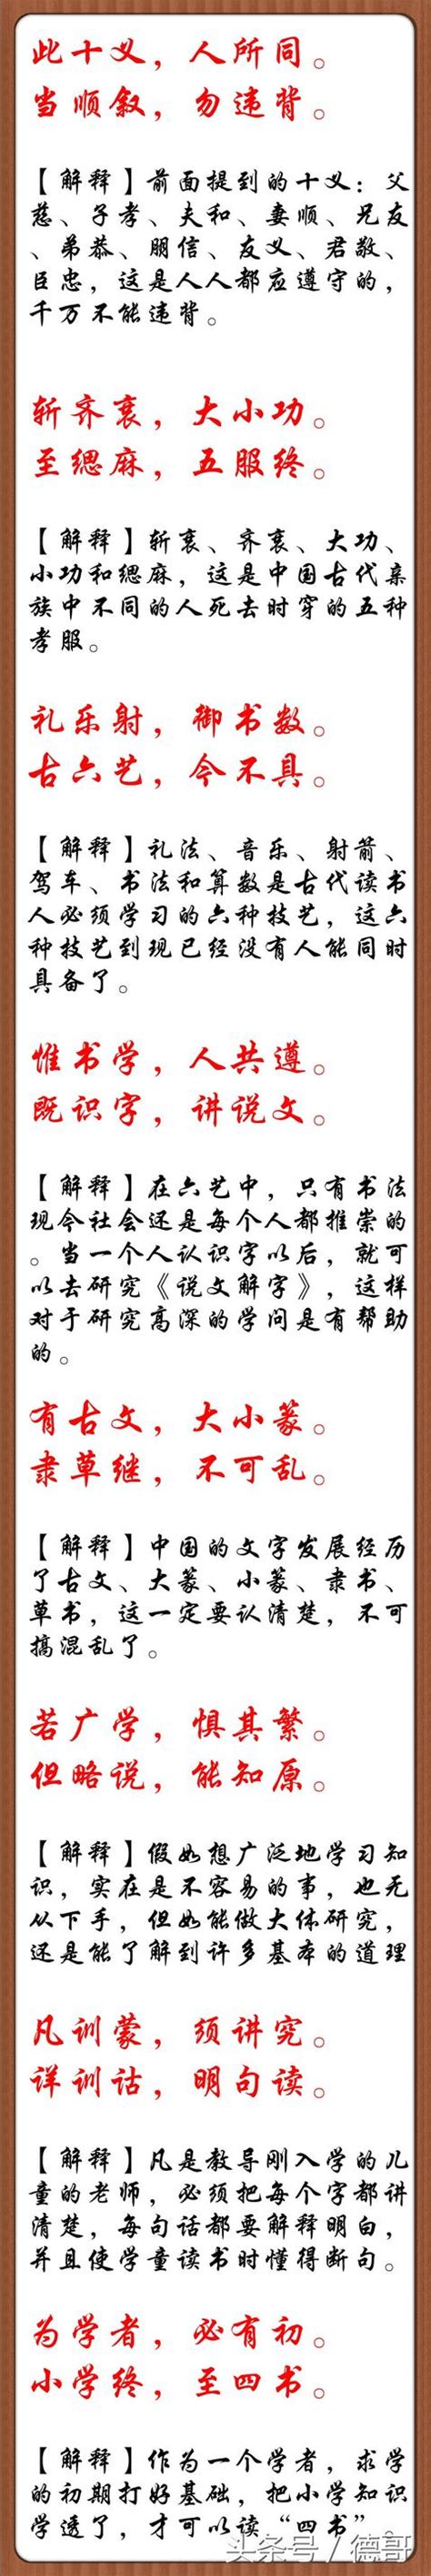 此十义，人所同。
当顺叙，勿违背。
【解释】前面提到的十义：父
慈、子孝、夫和、妻顺、兄友
、弟恭、朋信、友义、君敬、
臣忠，这是人人都应遵守的，
千万不能违背。
斩齐衰，大小功。
至缌麻，五服终。
【解释】斩衰、齐衰、大功、
小功和缌麻，这是中国古代亲
族中不同的人死去时穿的五种
孝服。
礼乐射，御书数。
古六艺，今不具。
【解释】礼法、音乐、射箭、
驾车、书法和算数是古代读书
人必须学习的六种技艺，这六
种技艺到现已经没有人能同时
具备了。
惟书学，人共遵。
既识字，讲说文。
【解释】在六艺中，只有书法
现今社会还是每个人都推崇的
。当一个人认识字以后，就可
以去研究《说文解字》，这样
对于研究高深的学问是有帮助
的。
有古文，大小篆。
隶草继，不可乱。
【解释】中国的文字发展经历
了古文、大篆、小篆、隶书、
草书，这一定要认清楚，不可
搞混乱了。
若广学，惧其繁。
但略说，能知原。
【解释】假如想广泛地学习知
识，实在是不容易的事，也无
从下手，但如能做大体研究，
还是能了解到许多基本的道理
凡训蒙，须讲究。
详训诂，明句读。
【解释】凡是教导刚入学的儿
童的老师，必须把每个字都讲
清楚，每句话都要解释明白，
并且使学童读书时懂得断句。
为学者，必有初。
小学终，至四书。
【解释】作为一个学者，求学
的初期打好基础，把小学知识
学透了，才可以读“四书”。
头条号 / 德哥